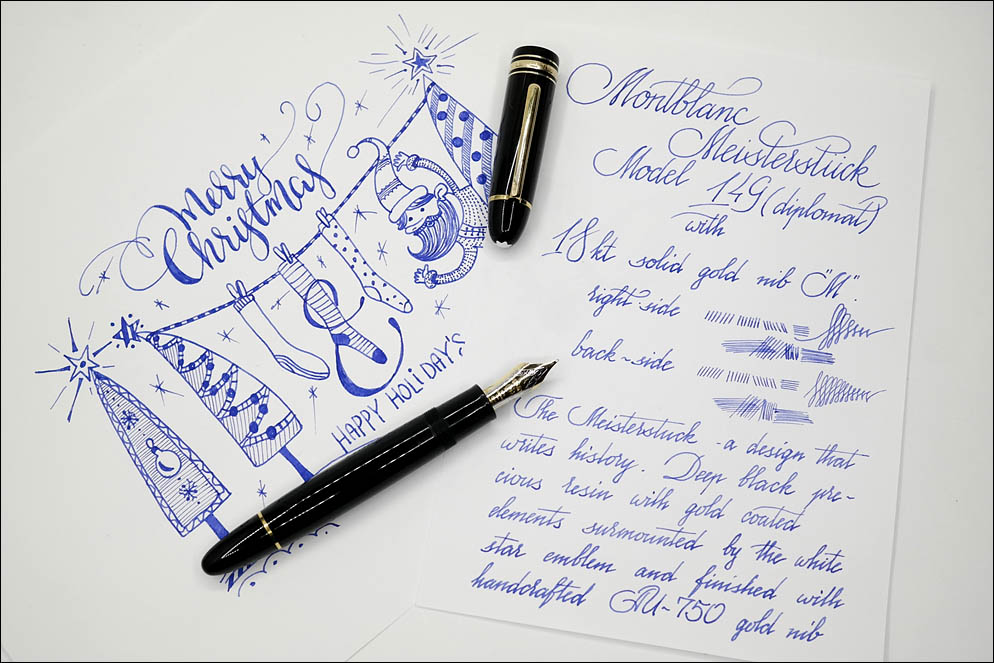 Merry
Christmas
HAPPY HOLIDAY'S
Montblanc
Meisterstück
Model 149 (diplomat)
with
18kt solid gold nib "M".
right side
back-side
The Meisterstuck - a design that
writes history. Deep black pre-
cious resin with gold coated
elements surmounted by the white
star emblem and finished with
handcrafted AU-750 gold nib